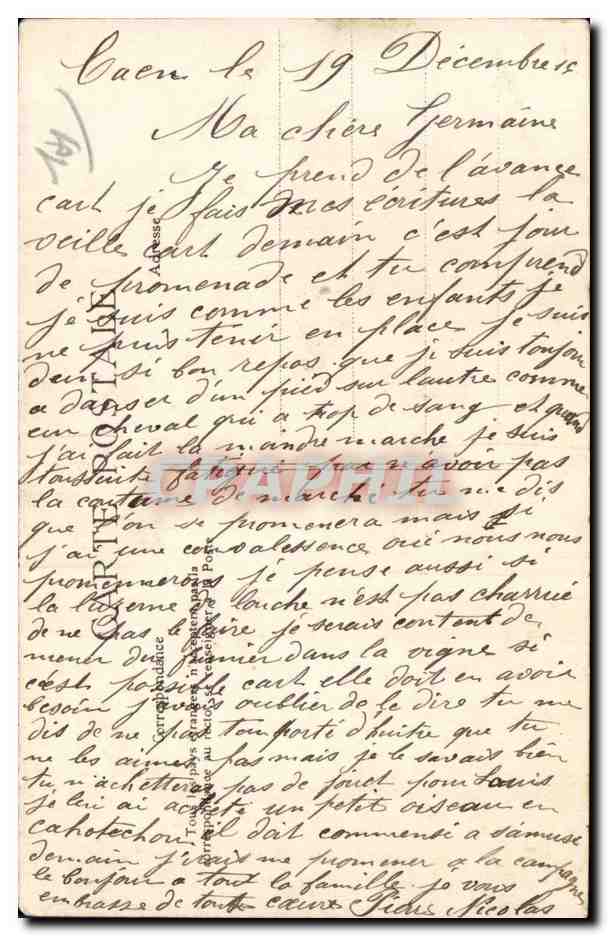 Caen le 19 Décembre 15
Ma chère Germaine
Je prend de l'avance
cart je fais mes écritures la
veille cart demain c'est jour
de promenade et tu comprend
je suis comme les enfants je
ne puis tenir en place je suis
dem si bon repos que je suis toujour
a danser d'un pied sur l'autre comme
un cheval qui a trop de sang et quand
j'ai fait la moindre marche je suis
toussuite fatigué pas n'avoir pas
la coutume de marché tu me dis
que l'on se promenera mais si
j'ai une convalessence oui nous nous
promennerons je pense aussi si
la luzerne de louche n'est pas charrué
de ne pas le faire je serais content de
mener du fumier dans la vigne si
c'est possible cart elle doit en avoir
besoin j'avais oublier de le dire tu me
dis de ne pas tem porté d'huitre que tu
ne les aimes pas mais je le savais bien
tu n'achettera pas de jouet pour Louis
je lui ai acheté un petit oiseau en
cahotechou il doit commensé a s'amusé
demain j'irais me promener a la campagne
le bonjour a tout la famille je vous
embrasse de tout coeure Pierre Nicolas
CARTE POSTALE
Correspondance
Adresse
Tous les pays étrangers n'acceptent pas la
correspondance au recto, se renseigner à la Poste
CPAPHIL